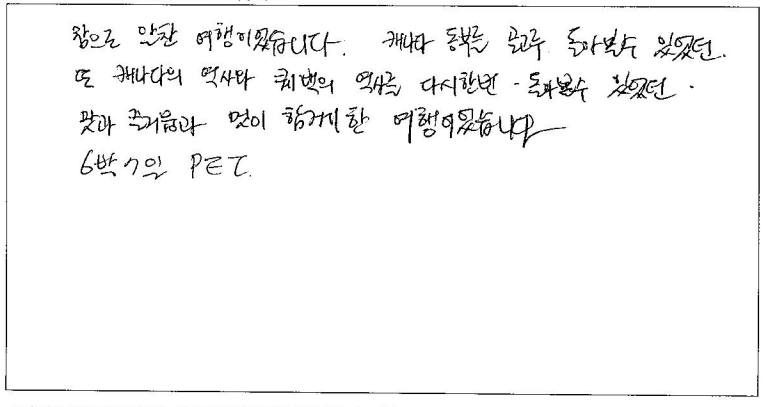 참으로 알찬 여행이었습니다. 캐나다 동부를 골고루 돌아볼수 있었던.
또 캐나다의 역사와 퀘벡의 역사를 다시한번 돌아볼수 있었던.
맛과 즐거움과 멋이 함께한 여행이었습니다
6박7일 PEI.